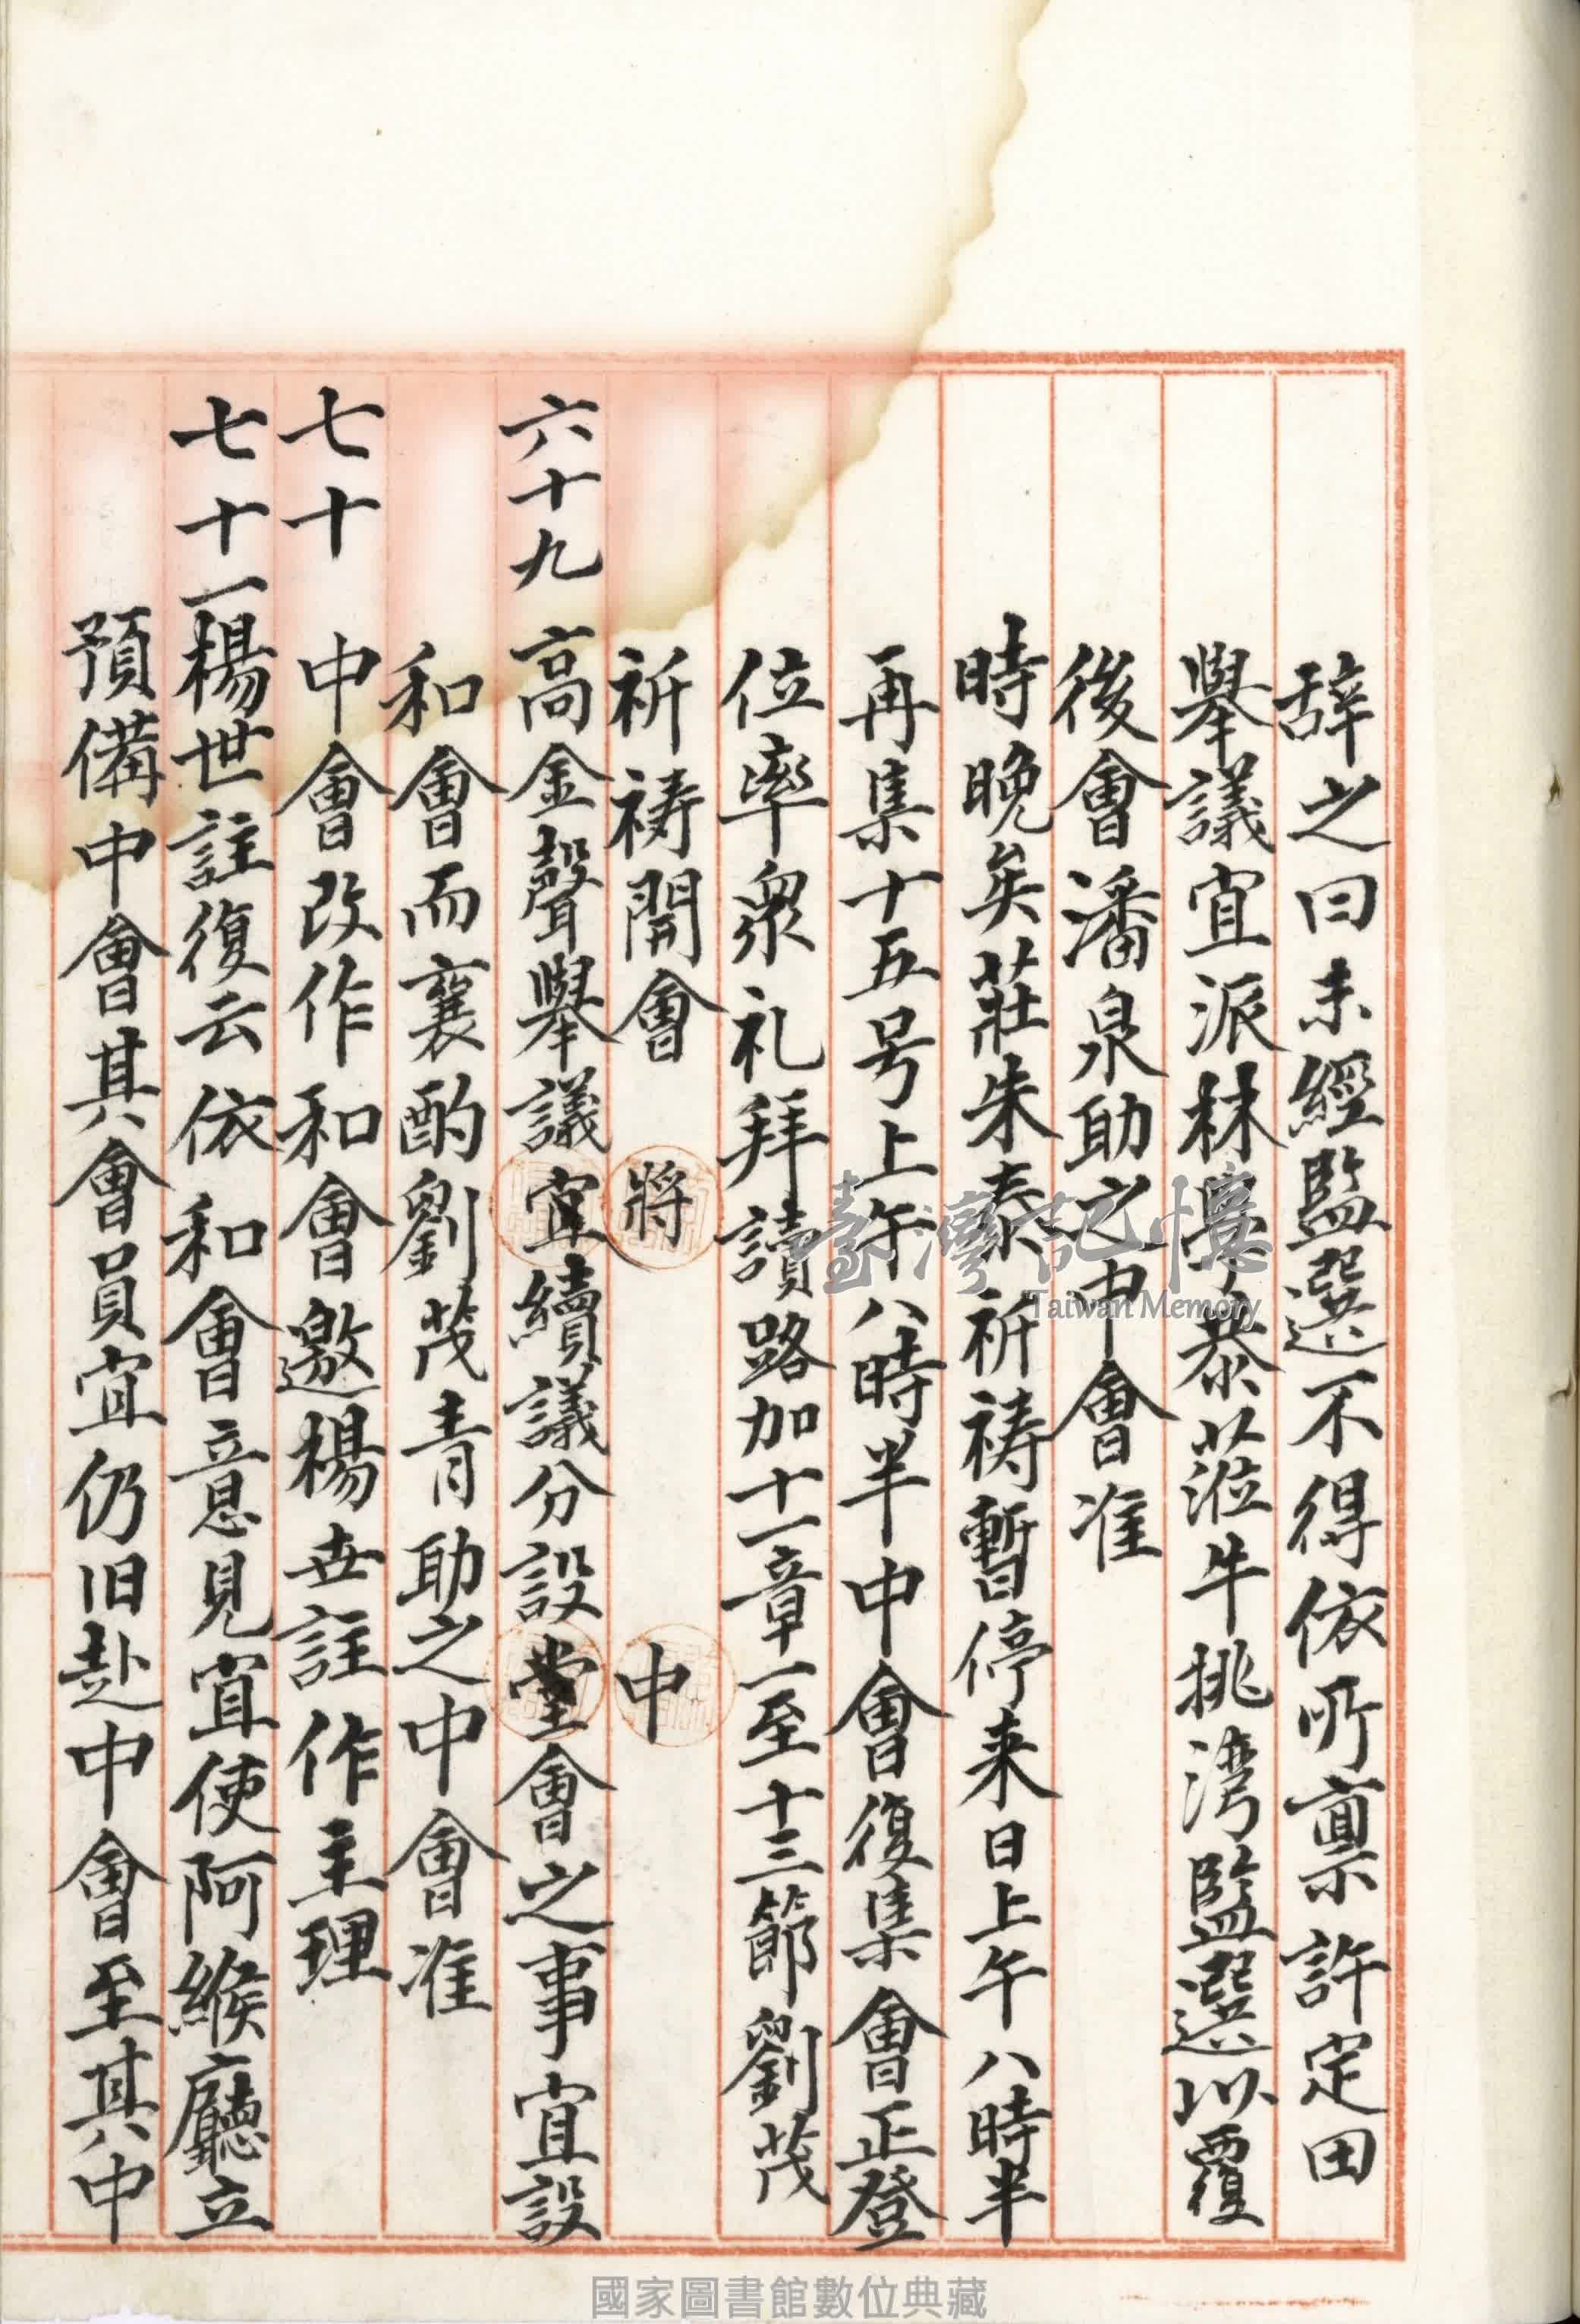 辞之曰未經監選不得依所禀許定田
舉議宜派林學恭蒞牛挑湾監選以覆
後會潘泉助之中會准
時晚矣莊朱泰祈禱暫停来日上午八時半
再集十五号上午八時半中會復集會正登
位率衆礼拜讀路加十一章一至十三節劉茂
祈禱開會 將 中
六十九 高金聲舉議宜續議分設堂會之事宜設
和會而襄酌劉茂青助之中會准
七十 中會改作和會邀楊世註作主理
七十一楊世註復云依和會意見宜使阿緱廳立
預備中會其會員宜仍旧赴中會至其中
臺灣記憶
Taiwan Memory
國家圖書館數位典藏